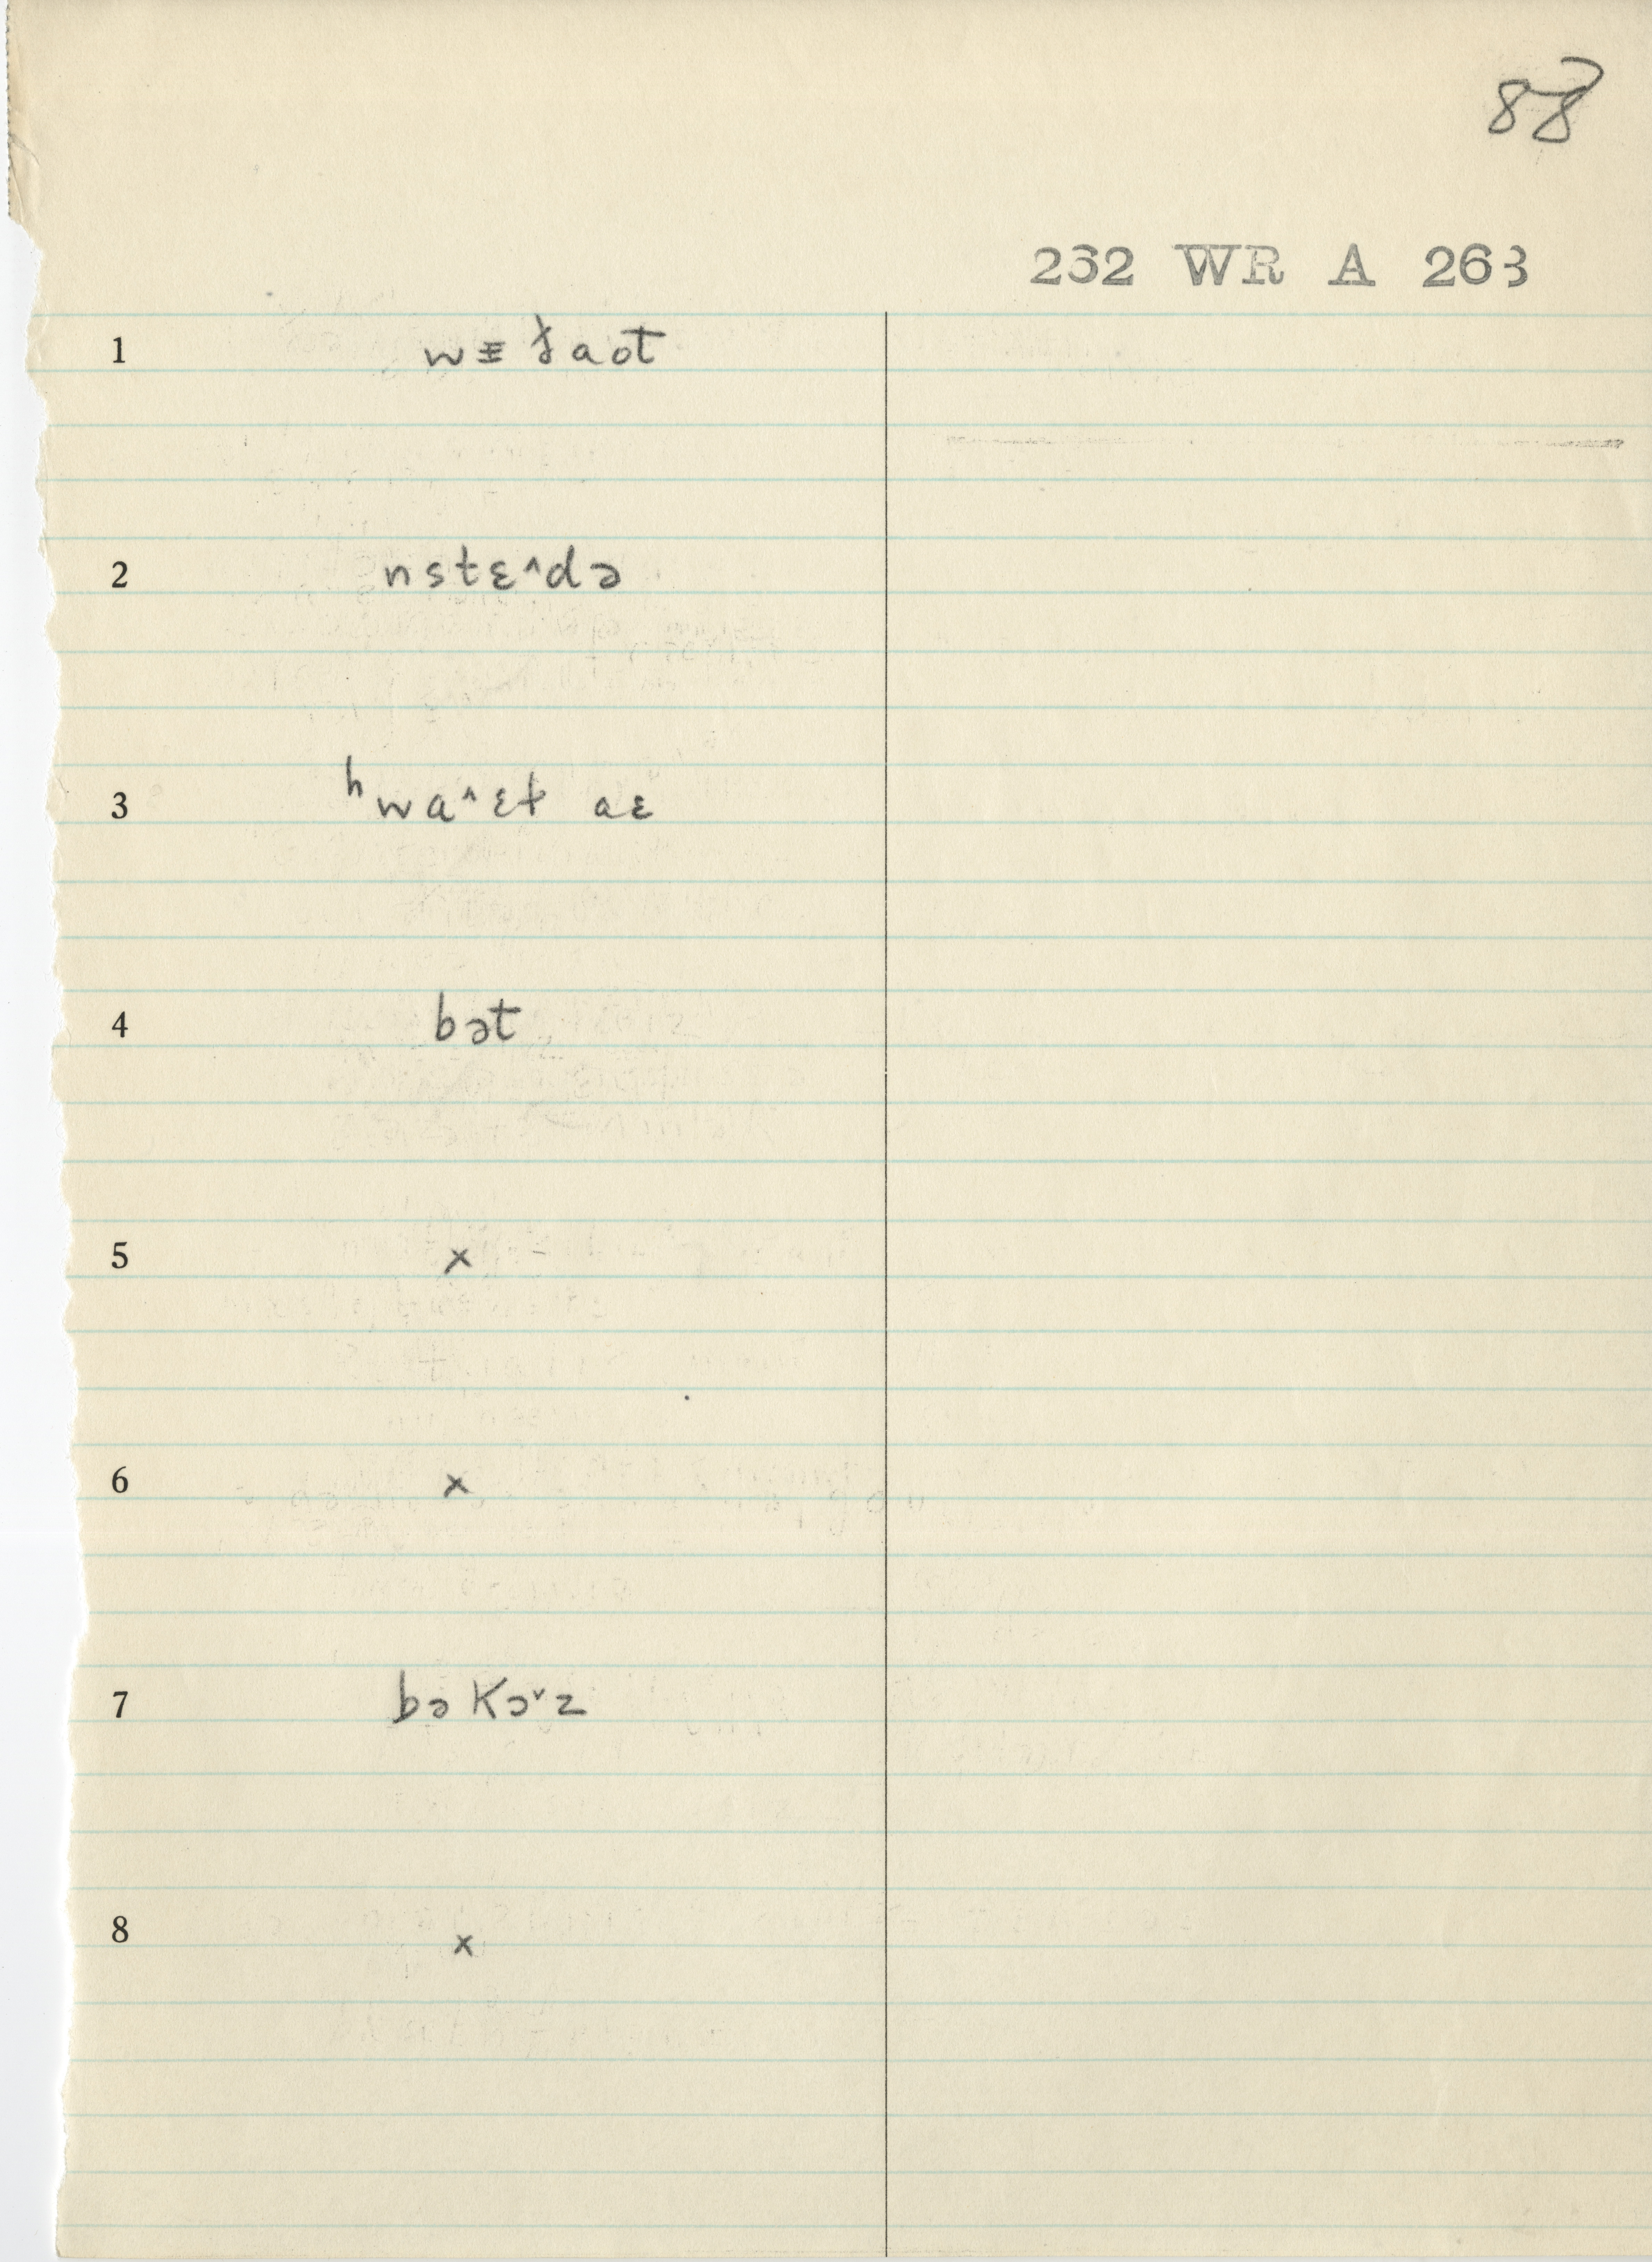 88
262 WR A 263
1 wᵻðaot
2 nstɛ^də
3 ʰwa^ɛɫ aɛ
4 bət
5 x
6 x
7 bə kɔˇz
8 x